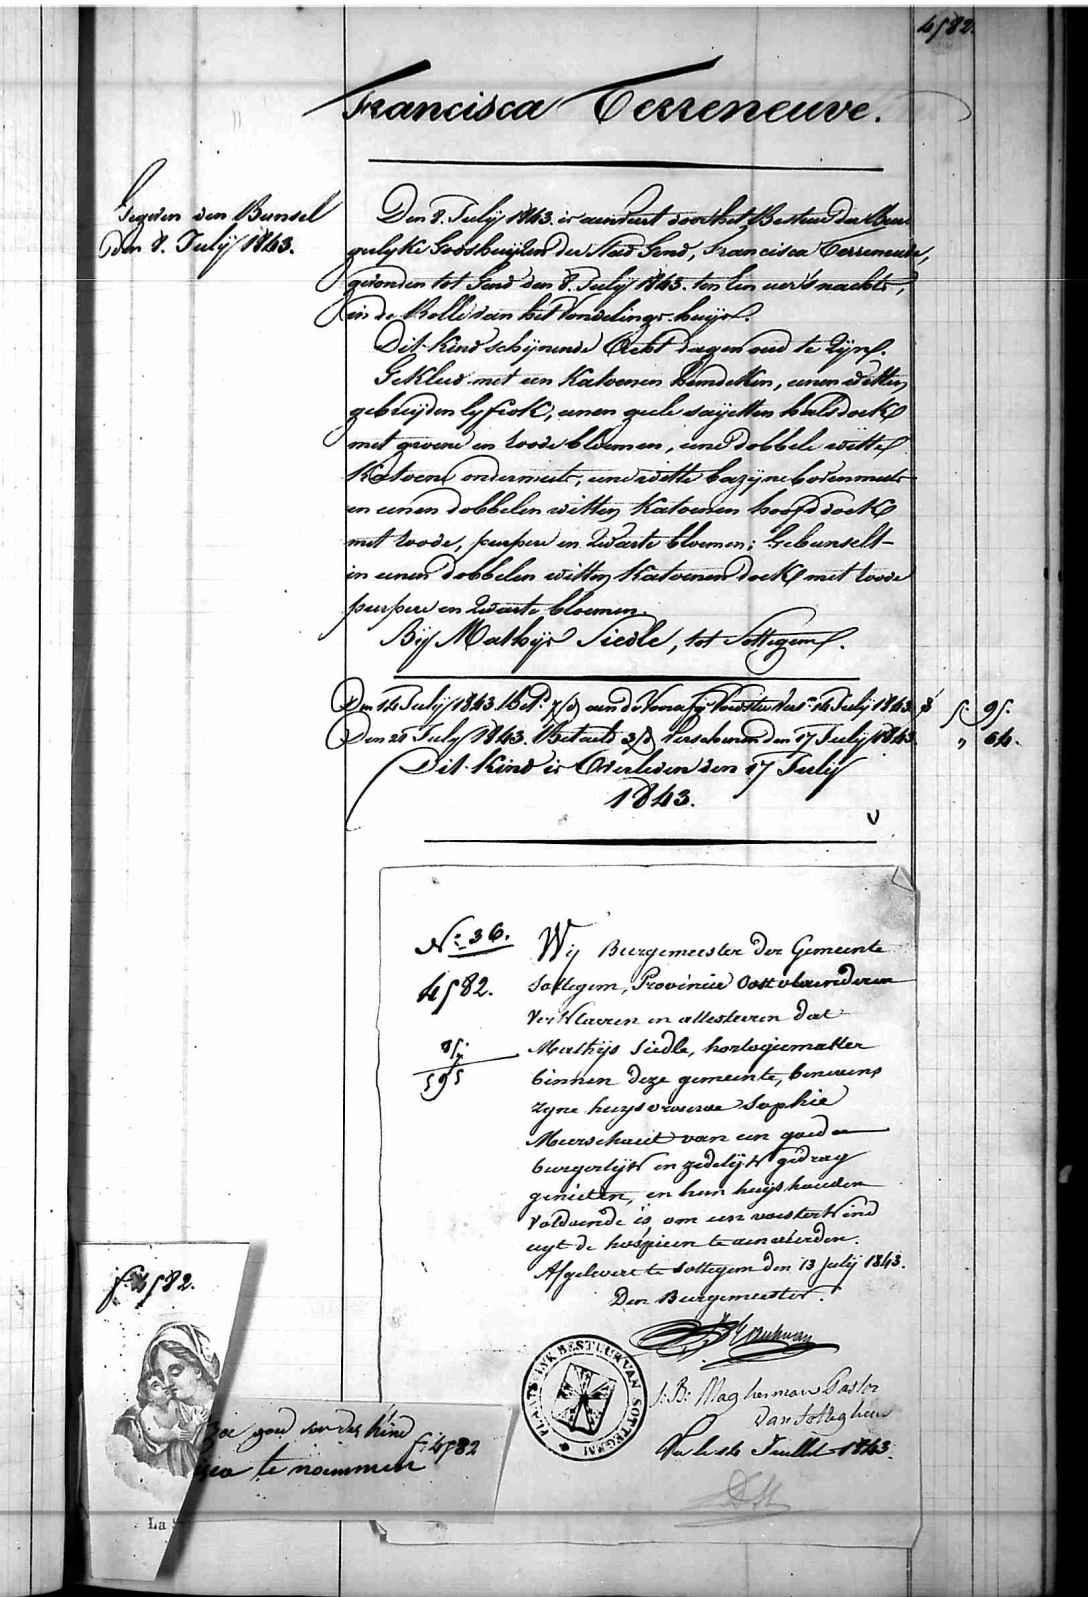 4582.
Francisca Terreneuve.
Gegeven den Bunsel
Den 8. Julij 1843.
Den 8. Julij 1843. is aenveert door het Bestuer der Bur
gerlyke Godshuijzen der Stad Gend, Francisca Terreneuve,
gevonden tot Gend den 8. Julij 1843. ten Een uer 's nachts,
in de Rolle van het Vondelings-huijs.
Dit Kind schijnende Acht dagen oud te Zijn.
Gekleed met een Katoenen hemdeken, eenen witten
gebreijden lyfrok, eenen geele saijetten halsdoek
met groene en roode bloemen, eene dobbele witte
Katoene ondermuts, eene witte bazijne bovenmuts
en eenen dobbelen witten Katoenen hoofddoek
met roode, purpere en Zwarte bloemen; Gebunselt
in eenen dobbelen witten Katoenen doek met roode
purpere en Zwarte bloemen.
Bij Mathijs Siedle, tot Sottegem.
Den 14 Julij 1843. Bet. aen de Voedster 14 Julij 1843 5. 95.
Den 21 July 1843. Betaeld Verschenen den 17 Julij 1843. " 64.
Dit Kind is Overleden den 17 Julij
1843.
V
No. 36.
4582.
595
Wij Burgemeester der Gemeente
Sottegem, Provincie Oostvlaenderen
Verklaeren en attesteeren dat
Mathijs Siedle, horlogiemaker
binnen deze gemeente, benevens
zyne huysvrouwe Sophie
van een goed
burgerlijk en zedelijk gedrag
genieten, en hun huijshouden
voldoende is, om een voesterkind
uyt de hospicen te aenveerden.
Afgelevert te Sottegem den 13 julij 1843.
Den Burgemeester.
PLAATSELYK BESTUUR VAN SOTTEGEM
J: B: Magherman Pastor
van Sotteghem
Vu le 14 Juillet 1843.
f: 4582.
La
goed voor dit kind
te noemmen
f: 4582